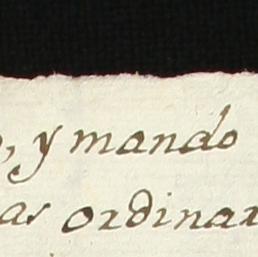 , y mando
as ordinar